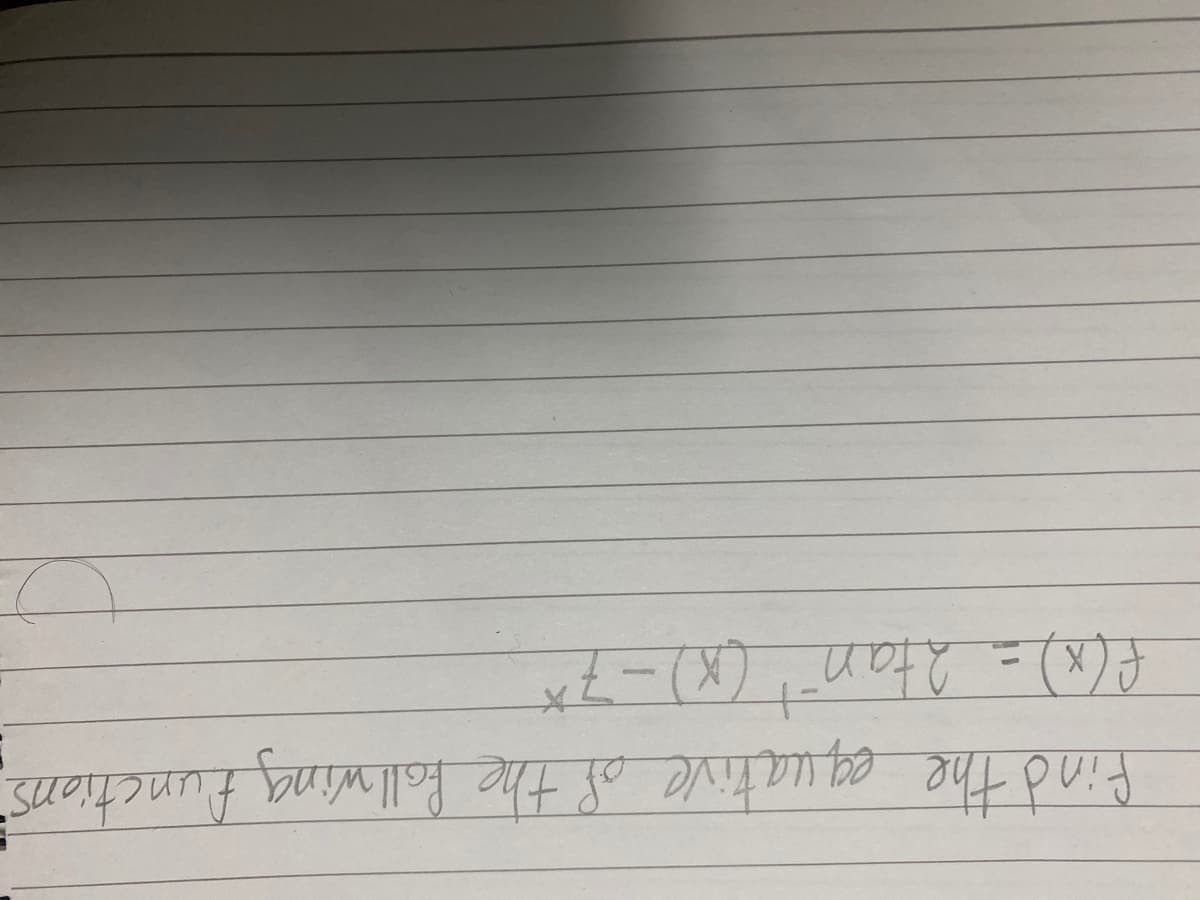 find the equative of the follwing functions
f(x) = 2tan⁻¹ (x) - 7ˣ